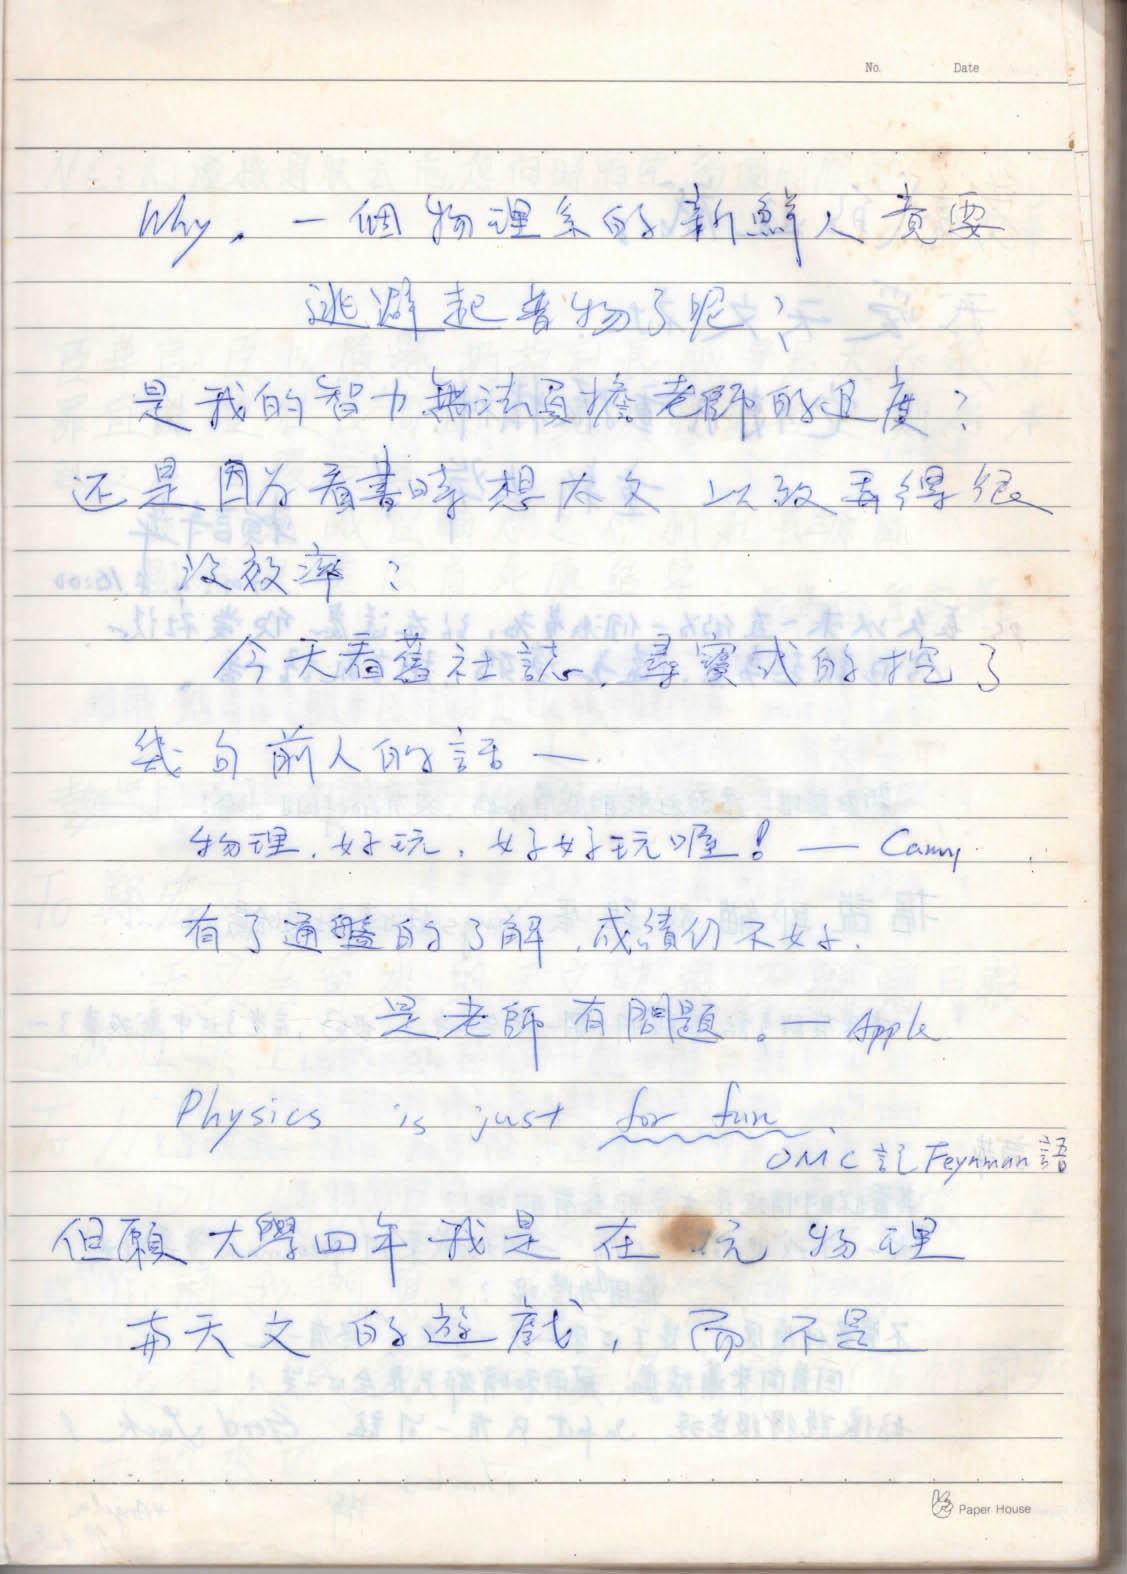 No.  Date
Why, 一個物理系的新鮮人竟要
逃避起普物了呢?
是我的智力無法負擔老師的進度?
还是因为看書時想太多 以致看得很
沒效率?
今天看舊社誌,尋寶式的挖了
幾句前人的話 —
物理,好玩,好好玩喔! — Camy
有了通盤的了解,成績仍不好,
是老師有問題。— Apple
Physics is just for fun.
OMC 記 Feynman 語
但願大學四年我是在玩物理
与天文的遊戲,而不是
Paper House